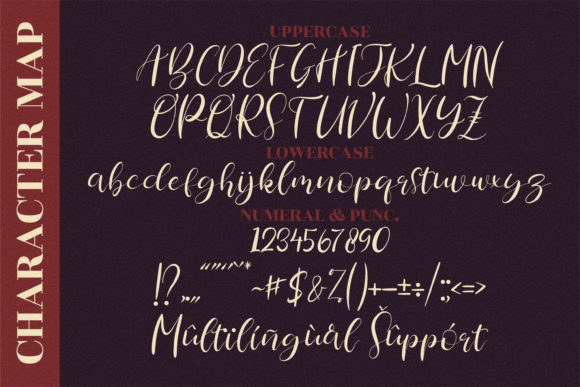 CHARACTER MAP
UPPERCASE
ABCDEFGHIJKLMN
OPQRSTUVWXYZ
LOWERCASE
abcdefghijklmnopqrstuvwxyz
NUMERAL & PUNC.
1234567890
!?,.„“”‘’"'*~#$&%()+−±÷/:;<=>
Mûltïlíñgùàl Šûppórt